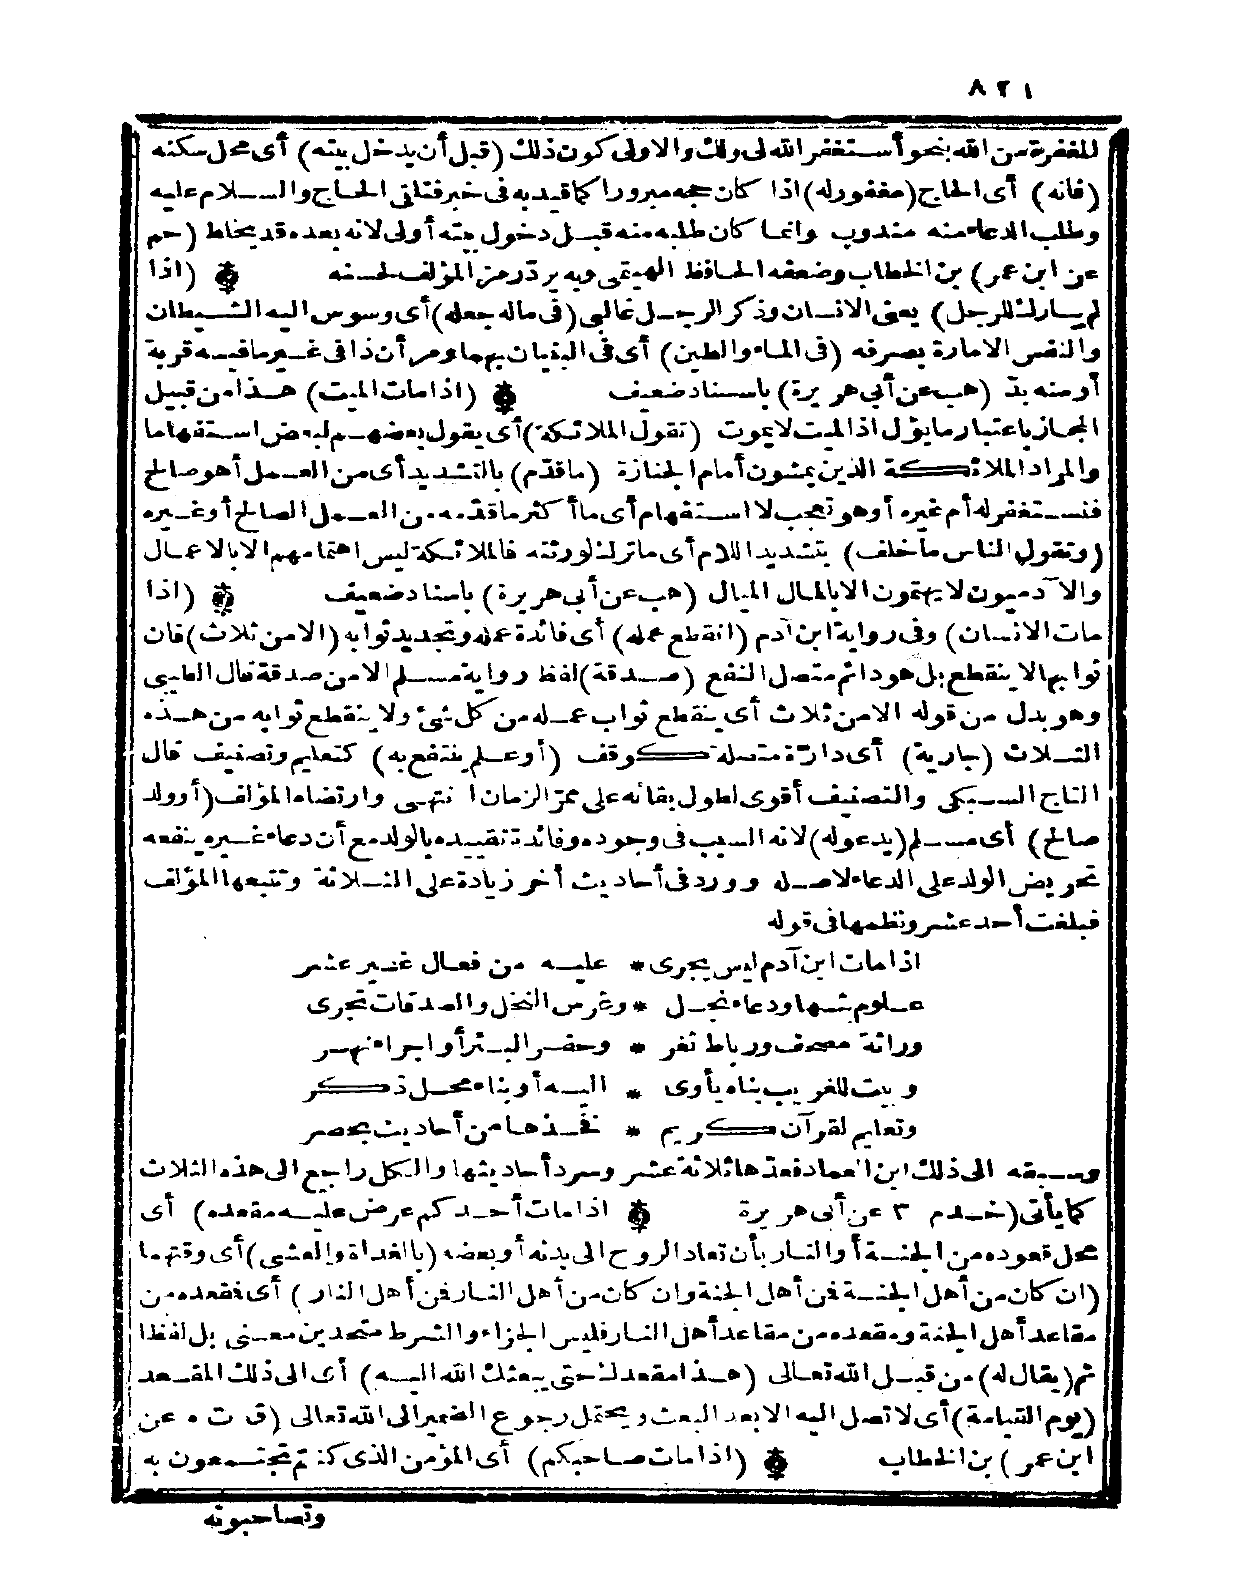 ١٢٨
للمغفرة من الله بنحو أستغفر الله لي ولك والاولى كون ذلك (قبل أن يدخل بيته) أى محل سكنه
(فانه) أى الحاج (مغفور له) اذا كان حجه مبرورا كما قيد به فى خبر فتلقى الحاج والسلام عليه
وطلب الدعاء منه مندوب وانما كان طلبه منه قبل دخول بيته أولى لانه بعده قد يخلط (حم
عن ابن عمر) بن الخطاب وضعفه الحافظ الهيتمى وبه يردّ رمز المؤلف لحسنه ۞ (اذا
لم يبارك للرجل) يعنى الانسان وذكر الرجل غالبى (فى ماله جعله) أى وسوس اليه الشيطان
والنفس الامارة بصرفه (فى الماء والطين) أى فى البنيان بهما ومر أن ذا فى غير ما فيه قربة
أو منه بدّ (هب عن أبى هريرة) باسناد ضعيف ۞ (اذا مات الميت) هذا من قبيل
المجاز باعتبار ما يؤل اذ الميت لا يموت (تقول الملائكة) أى يقول بعضهم لبعض استفهاما
والمراد الملائكة الذين يمشون أمام الجنازة (ما قدّم) بالتشديد أى من العمل أهو صالح
فنستغفر له أم غيره أو هو تعجب لا استفهام أى ما أكثر ما قدّمه من العمل الصالح أو غيره
(وتقول الناس ما خلف) بتشديد اللام أى ما ترك لورثته فالملائكة ليس اهتمامهم الا بالاعمال
والآدميون لا يهتمون الا بالمال الميال (هب عن أبى هريرة) باسناد ضعيف ۞ (اذا
مات الانسان) وفى رواية ابن آدم (انقطع عمله) أى فائدة عمله وتجديد ثوابه (الا من ثلاث) فان
ثوابها لا ينقطع بل هو دائم متصل النفع (صدقة) لفظ رواية مسلم الا من صدقة قال الطيبى
وهو بدل من قوله الا من ثلاث أى ينقطع ثواب عمله من كل شئ ولا ينقطع ثوابه من هذه
الثلاث (جارية) أى دارّة متصلة كوقف (أو علم ينتفع به) كتعليم وتصنيف قال
التاج السبكى والتصنيف أقوى لطول بقائه على ممرّ الزمان انتهى وارتضاه المؤلف (أو ولد
صالح) أى مسلم (يدعو له) لانه السبب فى وجوده وفائدة تقييده بالولد مع أن دعاء غيره ينفعه
تحريض الولد على الدعاء لاصله وورد فى أحاديث أخر زيادة على الثلاثة وتتبعها المؤلف
فبلغت أحد عشر ونظمها فى قوله
اذا مات ابن آدم ليس يجرى * عليه من فعال غير عشر
علوم بثها ودعاء نجل * وغرس النخل والصدقات تجرى
وراثة مصحف ورباط ثغر * وحفر البئر أو اجراء نهر
وبيت للغريب بناه يأوى * اليه أو بناء محل ذكر
وتعليم لقرآن كريم * فخذها من أحاديث بحصر
وسبقه الى ذلك ابن العماد فعدّها ثلاثة عشر وسرد أحاديثها والكل راجع الى هذه الثلاث
كما يأتى (خد م ٣ عن أبى هريرة ۞ اذا مات أحدكم عرض عليه مقعده) أى
محل قعوده من الجنة أو النار بأن تعاد الروح الى بدنه أو بعضه (بالغداة والعشى) أى وقتهما
(ان كان من أهل الجنة فمن أهل الجنة وان كان من أهل النار فمن أهل النار) أى فمقعده من
مقاعد أهل الجنة ومقعده من مقاعد أهل النار فليس الجزاء والشرط متحدين معنى بل لفظا
ثم (يقال له) من قبل الله تعالى (هذا مقعدك حتى يبعثك الله اليه) أى الى ذلك المقعد
(يوم القيامة) أى لا تصل اليه الا بعد البعث ويحتمل رجوع الضمير الى الله تعالى (ق ت ه عن
ابن عمر) بن الخطاب ۞ (اذا مات صاحبكم) أى المؤمن الذى كنتم تجتمعون به
وتصاحبونه